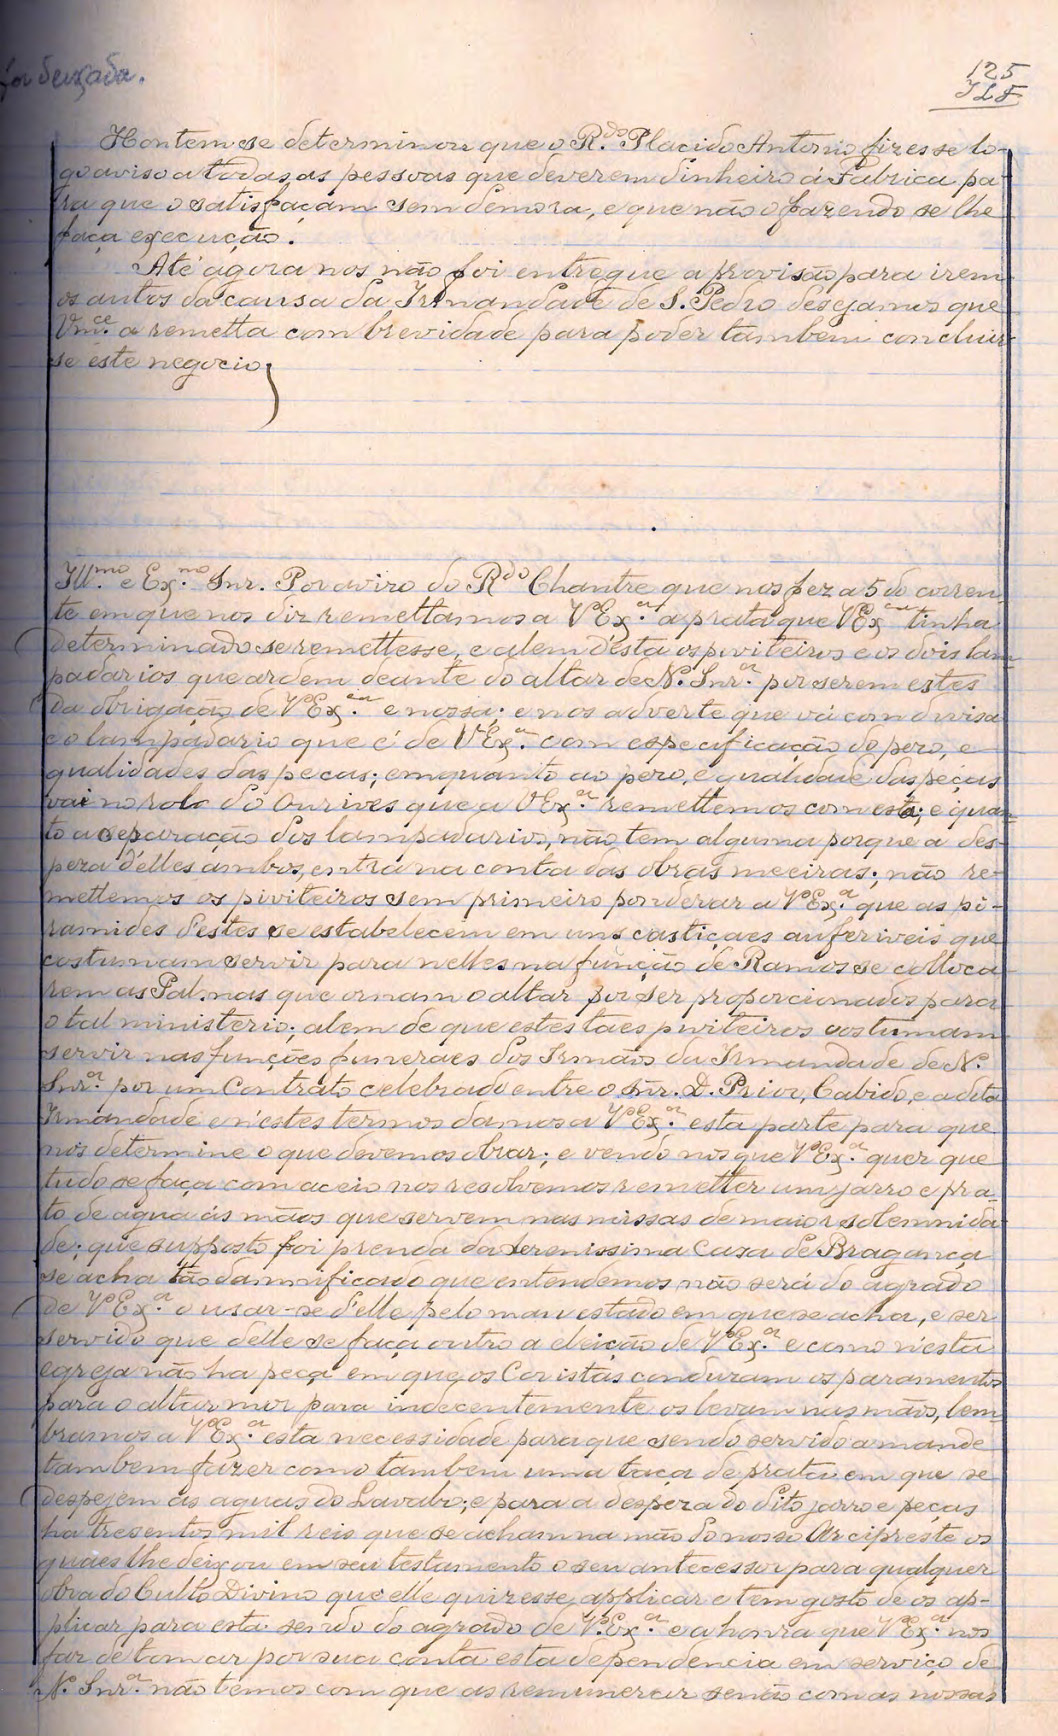 foi deixada.
125
Hontem se determinou que o R.do Placido Antonio fizesse lo-
go aviso a todas as pessoas que deverem dinheiro á Fabrica pa-
ra que o satisfaçam sem demora, e que não o fazendo se lhe
faça execução.
Até agora nos não foi entregue a provisão para irem
os autos da causa da Irmandade de S. Pedro desejamos que
Vm.ce a remetta com brevidade para poder tambem concluir
se este negocio
Ill.mo e Ex.mo Snr. Por aviso do R.do Chantre que nos fez a 5 do corren
te em que nos diz remettamos a VEx.a a prata que VEx.cia tinha
determinado se remettesse, e alem d'esta os piviteiros e os dois lam
padarios que ardem deante do altar de N. Snr.a por serem estes
da obrigação de VEx.cia e nossa; e nos adverte que vá com divisa
o lampadario que é de VEx.a com especificação do pezo, e
qualidades das pecas; emquanto ao pezo, e qualidade das peças
vai no rolo do Ourives que a VEx.a remettemos com esta; e quan
to a separação dos lampadarios, não tem alguma porque a des-
peza d'elles ambos, entra na conta das obras meeiras; não re-
mettemos os piviteiros sem primeiro ponderar a VEx.a que as pi-
ramides d'estes se estabelecem em uns castiçaes auferiveis que
costumam servir para nelles na função de Ramos se colloca
rem as Palmas que ornam o altar por ser proporcionados para
o tal ministerio; alem de que estes taes piviteiros costumam
servir nas funções funeraes dos Irmãos da Irmandade de N.
Snr.a por um contrato celebrado entre o Snr. D. Prior, Cabido, e a dita
Irmandade e n'estes termos damos a VEx.a esta parte para que
nos determine o que devemos obrar; e vendo nos que VEx.a quer que
tudo se faça com aceio nos resolvemos remetter um jarro e pra-
to de agua ás mãos que servem nas missas de maior solemnida
de; que supposto foi prenda da serenissima Casa de Bragança
se acha tão damnificado que entendemos não será do agrado
de VEx.a o usar-se d'elle pelo mau estado em que se acha, e ser
servido que delle se faça outro a eleição de VEx.a e como n'esta
egreja não ha peça em que os Coristas conduzam os paramentos
para o altar mor para indecentemente os levam nas mãos, lem
bramos a VEx.a esta necessidade para que sendo servido a mande
tambem fazer como tambem uma taça de prata em que se
despejem as aguas do Lavabo; e para a despeza do dito jarro e peças
ha tresentos mil reis que se acham na mão do nosso Arcipreste os
quaes lhe deixou em seu testamento o seu antecessor para qualquer
obra do Culto Divino que elle quizesse applicar e tem gosto de os ap-
plicar para esta sendo do agrado de V.Ex.a e a honra que VEx.a nos
faz de tomar por sua conta esta dependencia em serviço de
N. Snr.a não temos com que as remunerar senão com as nossas